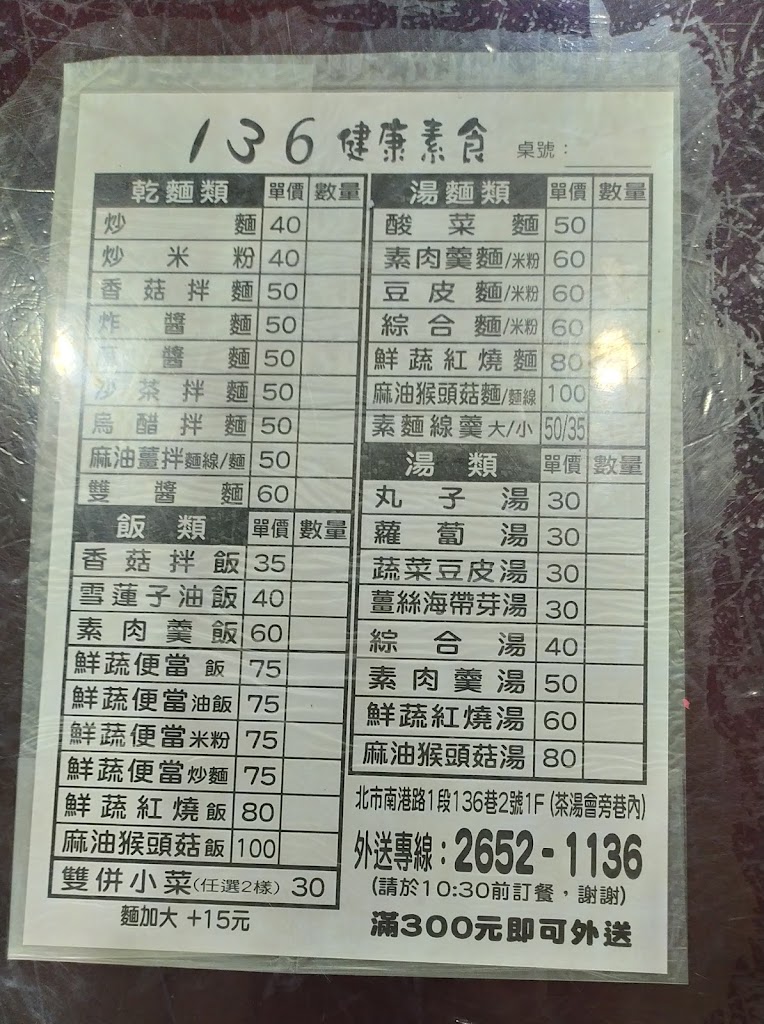 136 健康素食 桌號：
乾麵類 單價 數量
炒麵 40
炒米粉 40
香菇拌麵 50
炸醬麵 50
麻醬麵 50
沙茶拌麵 50
烏醋拌麵 50
麻油薑拌麵線/麵 50
雙醬麵 60
飯類 單價 數量
香菇拌飯 35
雪蓮子油飯 40
素肉羹飯 60
鮮蔬便當 飯 75
鮮蔬便當油飯 75
鮮蔬便當米粉 75
鮮蔬便當炒麵 75
鮮蔬紅燒飯 80
麻油猴頭菇飯 100
雙併小菜(任選2樣) 30
麵加大 +15元
湯麵類 單價 數量
酸菜麵 50
素肉羹麵/米粉 60
豆皮麵/米粉 60
綜合麵/米粉 60
鮮蔬紅燒麵 80
麻油猴頭菇麵/麵線 100
素麵線羹 大/小 50/35
湯類 單價 數量
丸子湯 30
蘿蔔湯 30
蔬菜豆皮湯 30
薑絲海帶芽湯 30
綜合湯 40
素肉羹湯 50
鮮蔬紅燒湯 60
麻油猴頭菇湯 80
北市南港路1段136巷2號1F(茶湯會旁巷內)
外送專線：2652-1136
(請於10:30前訂餐，謝謝)
滿300元即可外送